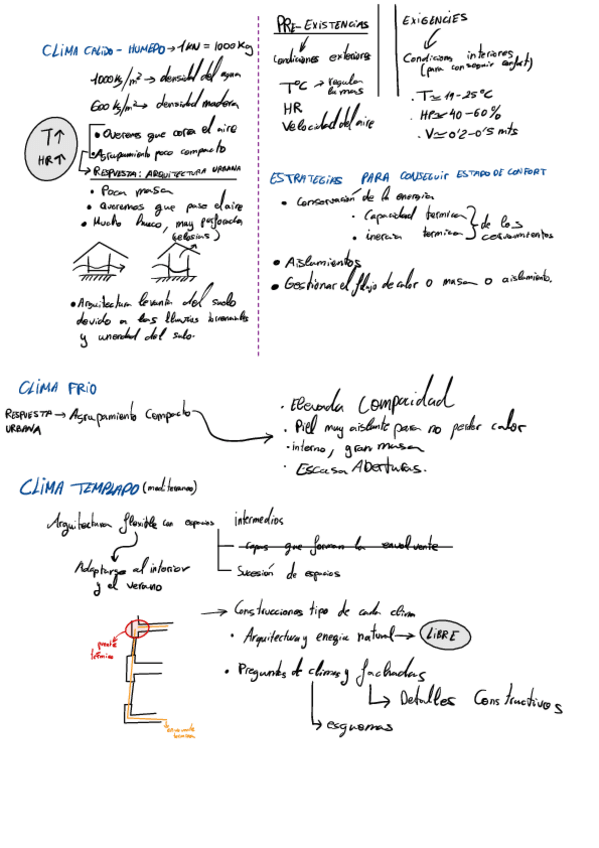 CLIMA CALIDO - HUMEDO → 1KN = 1000Kg
1000Ks/m² → densidad del agua
600 Ks/m² → densidad madera
T↑
HR↑
• Queremos que corra el aire
• Agrupamiento poco compacto
RESPUESTA: ARQUITECTURA URBANA
• Poca masa
• Queremos que pase el aire
• Mucho hueco, muy perforada
(celosias)
• Arquitectura levanta del suelo
devido a las lluvias torrenciales
y umerdad del sulo.
PRE-EXISTENCIAS
Condiciones exteriores
TºC → regulan la mas
HR
Velocidad del aire
EXIGENCIES
Condicions interiores
(para conseguir confort)
. T ≃ 19-25ºC
. HR ≃ 40-60%
. V ≃ 0'2-0'5 mts
ESTRATEGIAS PARA CONSEGUIR ESTADO DE CONFORT
• Conservación de la energia
• Capacidad termica
• inercia termica
de los cerramientos
• Aislamientos
• Gestionar el flujo de calor o masa o aislamiento.
CLIMA FRIO
RESPUESTA URBANA → Agrupamiento Compacto
. Elevada Compacidad
. Piel muy aislante para no perder calor
. interno, gran masa
. Escasa Aberturas.
CLIMA TEMPLADO (mediterraneo)
Arquitectura flexible con espacios intermedios
capas que forman la envolvente
Sucesión de espacios
Adaptarse al interior
y el verano
puente
térmico
→ Construcciones tipo de cada clima
• Arquitectura y enegia natural → LIBRE
• Preguntas de climas y fachadas
→ Detalles Constructivos
→ esquemas